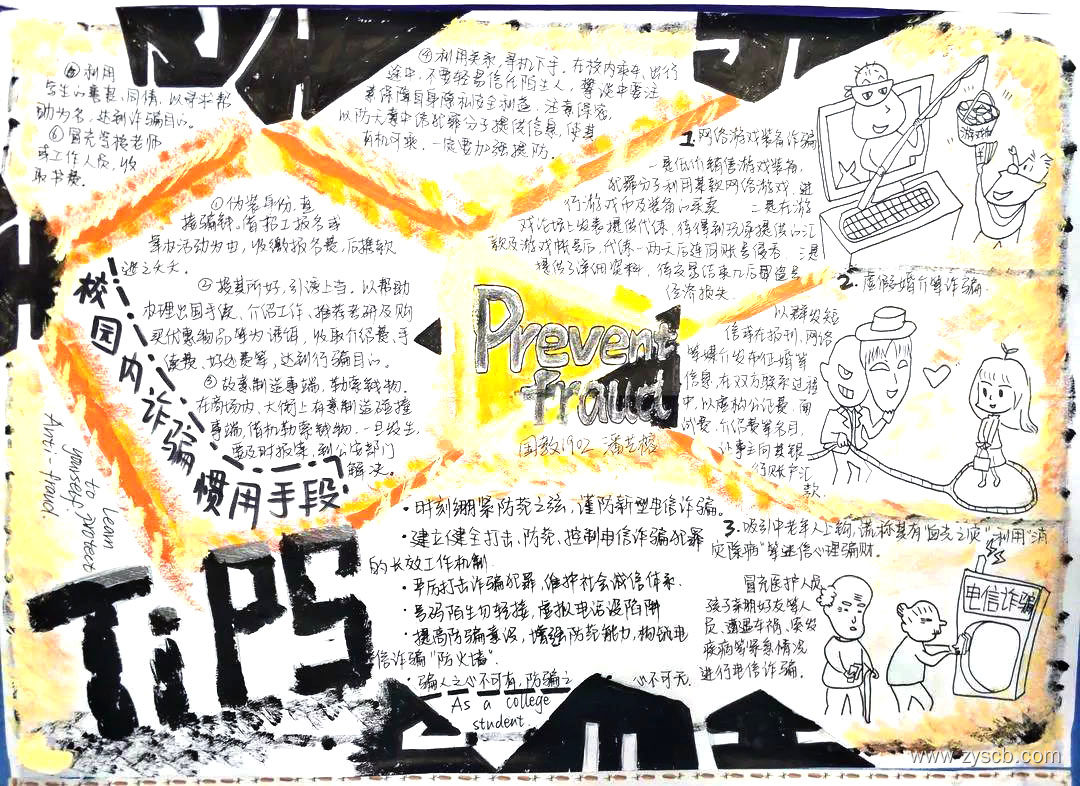 ④利用关系,寻机下手。在校内乘车、出行
途中,不要轻易信任陌生人,攀谈中要注
意保障自身隐私及全利益,注意保密,
以防大意中给犯罪分子提供信息,使其
有机可乘,一定要加强提防。
⑤利用
学生的善良、同情,以寻求帮
助为名,达到诈骗目的。
⑥冒充学校老师
或工作人员,收
取书费。
①伪装身份,直
接骗钱,借招工报名或
举办活动为由,收缴报名费,后携款
逃之夭夭。
②投其所好,引诱上当,以帮助
办理出国手续、介绍工作、推荐考研及购
买优惠物品等为诱饵,收取介绍费、手
续费、好处费等,达到行骗目的。
③故意制造事端,勒索钱物。
在商场内、大街上有意制造碰撞
事端,借机勒索钱物,一旦发生,
要及时报案,到公安部门
解决。
校园内诈骗惯用手段
Learn
to
yourself protect
Anti-fraud.
Prevent
fraud
国教1902
1.网络游戏装备诈骗
一是低价销售游戏装备,
犯罪分子利用某款网络游戏,进
行游戏币及装备的买卖 二是在游
戏论坛上发表提供代练,待得到玩家提供的汇
款及游戏帐号后,代练一两天后连同账号侵吞,三是
提供了详细资料,待交易结束几后
经济损失.
游戏币
2.虚假婚介等诈骗.
以群发短
信或在报刊、网络
等媒介发布征婚等
信息,在双方联系过程
中,以虚构公证费、面
试费、介绍费等名目,
让事主向其银
行账户汇
款.
3.吸引中老年人上钩,谎称其有"血光之灾",利用"消
灾除病"等迷信心理骗财。
冒充医护人员
孩子亲朋好友等人
员、遭遇车祸、突发
疾病等紧急情况
进行电信诈骗.
电信诈骗
TiPS
• 时刻绷紧防范之弦,谨防新型电信诈骗。
• 建立健全打击、防范、控制电信诈骗犯罪
的长效工作机制.
• 严厉打击诈骗犯罪,维护社会诚信体系.
• 号码陌生勿轻接,虚拟电话设陷阱
• 提高防骗意识,增强防范能力,构筑电
信诈骗"防火墙".
• 骗人之心不可有,防骗之 心不可无.
As a college
student.
www.zyscb.com